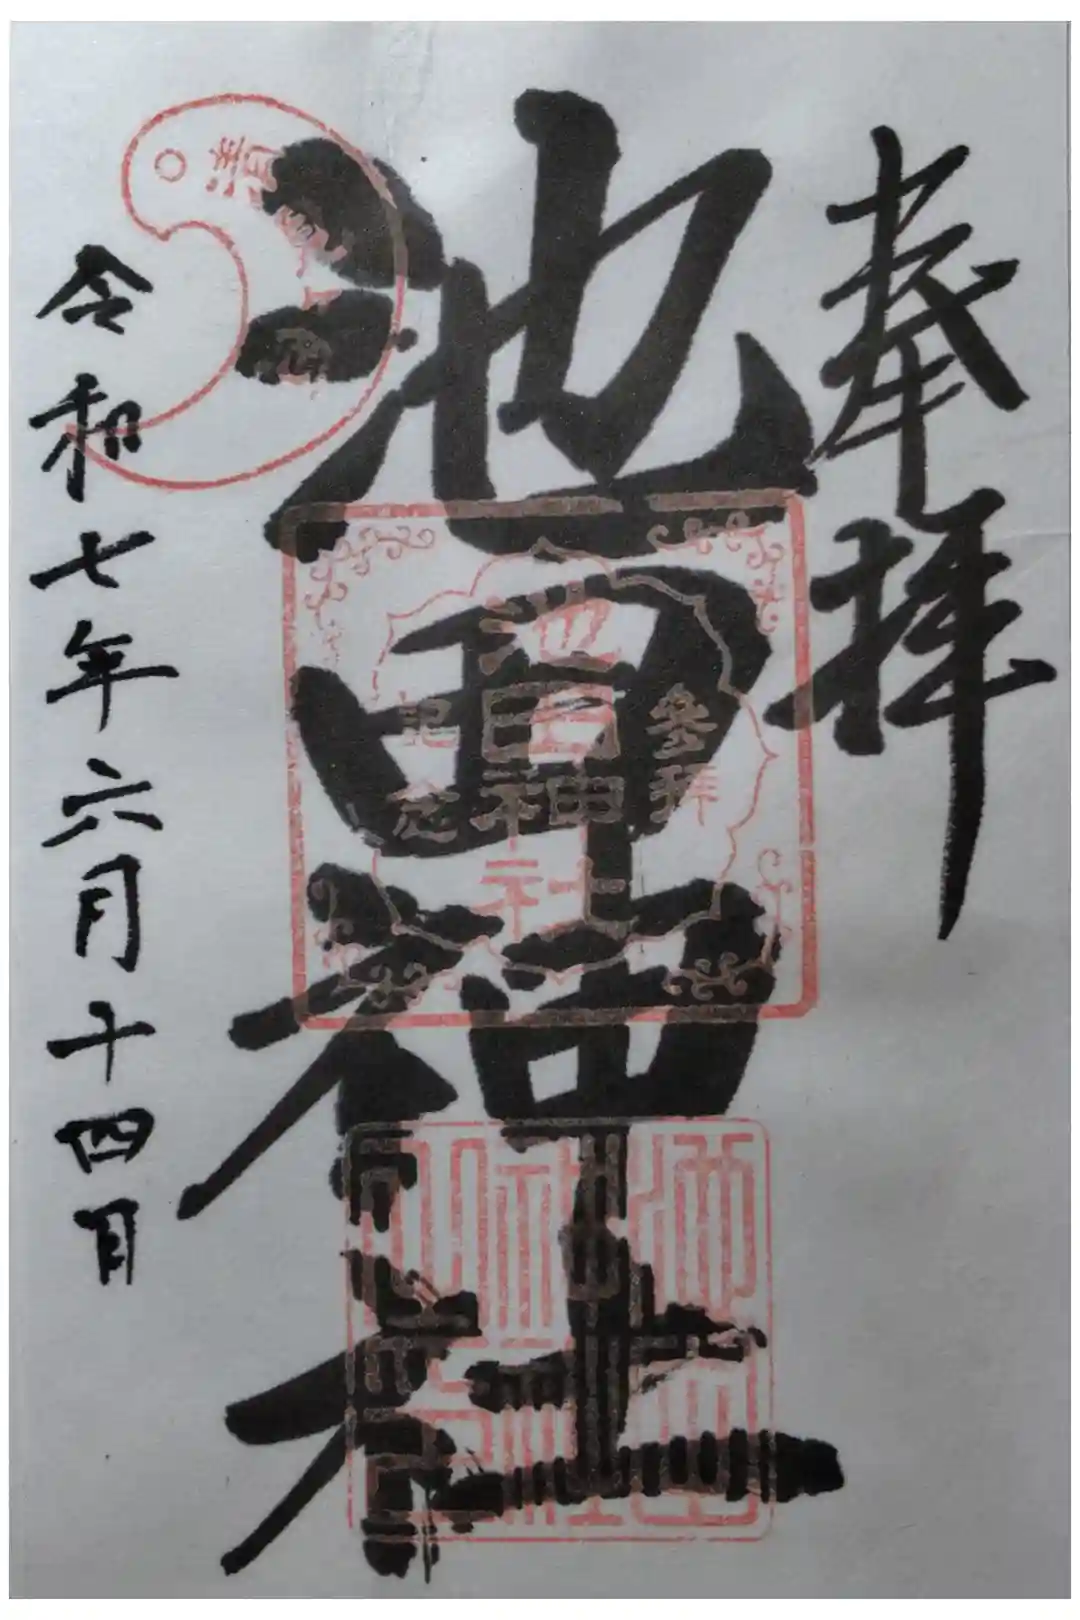 奉拝
池田神社
令和七年六月十四日
参拝
池田神社
記念